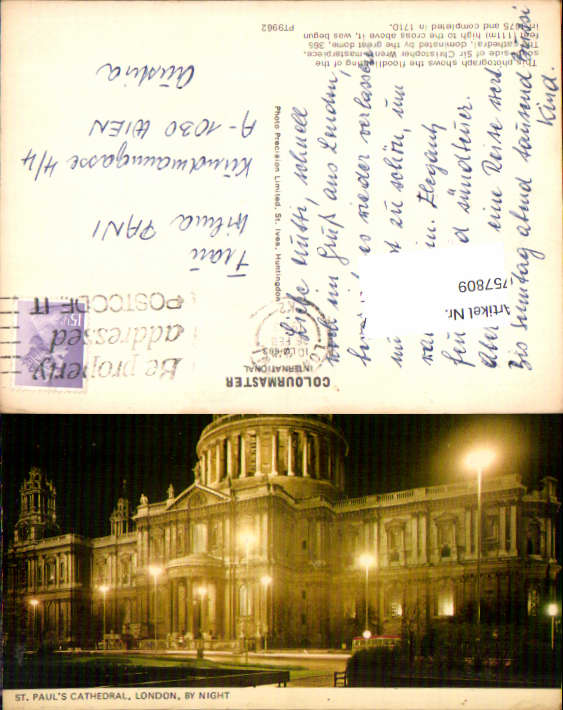 This photograph shows the floodlighting of the
south side of Sir Christopher Wren's masterpiece.
The cathedral, dominated by the great dome, 365
feet (111m) high to the cross above, it was begun
in 1675 and completed in 1710.
PT9962
COLOURMASTER
INTERNATIONAL
Photo Precision Limited, St. Ives, Huntingdon
Be properly
addressed
POSTCODE IT
15½
Frau
Wilma PANI
Kundmanngasse 4/4
A-1030 WIEN
Austria
Liebe Mutti, schnell
noch ein Gruß aus London,
es wieder verlassen
zu schön, um
Eleganz
sündteuer.
Aber eine Reise wert.
Bis Sonntag abend tausend Bussi
Kind.
Artikel Nr.
757809
ST. PAUL'S CATHEDRAL, LONDON, BY NIGHT